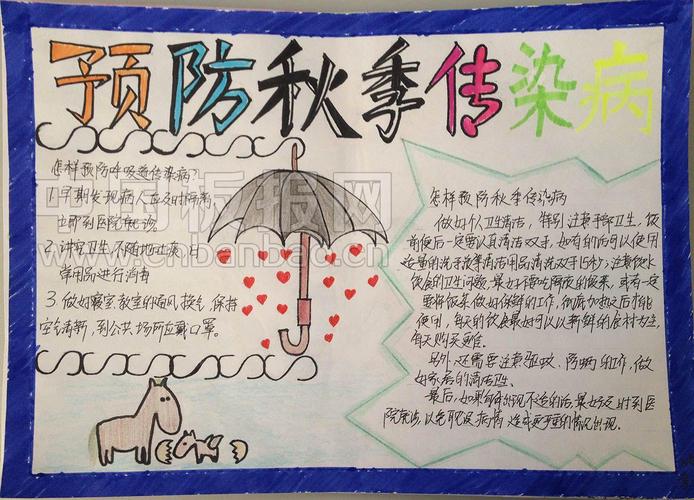 预防秋季传染病
怎样预防呼吸道传染病?
1.早期发现病人应及时隔离
立即到医院就诊
2.讲究卫生不随地吐痰,日
常用品进行消毒
3.做好寝室,教室的通风,换气,保持
空气清新,到公共场所应戴口罩。
怎样预防秋季传染病
做好个人卫生清洁,特别注意手部卫生,饭
前便后一定要认真清洁双手,如有的话可以使用
适量的洗手液等清洁用品清洗双手15秒;注意饮水
饮食的卫生问题,最好不要吃隔夜的饭菜,或者一定
要将饭菜做好保鲜的工作,彻底加热之后才能
使用,每天的饮食最好可以以新鲜的食材为主,
每天购买更合
另外,还需要注意驱蚊、防蚊的工作,做
好家居的清洁卫生。
最后,如果身体出现不适的话,最好及时到医
院就诊,以免耽误病情造成更严重的情况出现。
三司板报网
chbanbao.cn